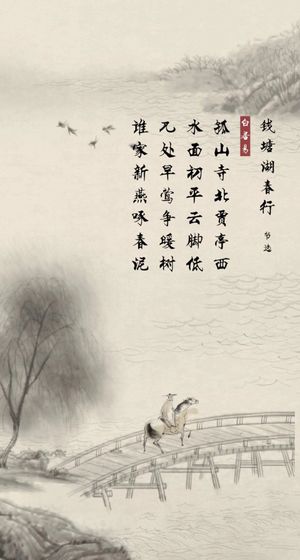 钱塘湖春行
节选
白居易
孤山寺北贾亭西
水面初平云脚低
几处早莺争暖树
谁家新燕啄春泥